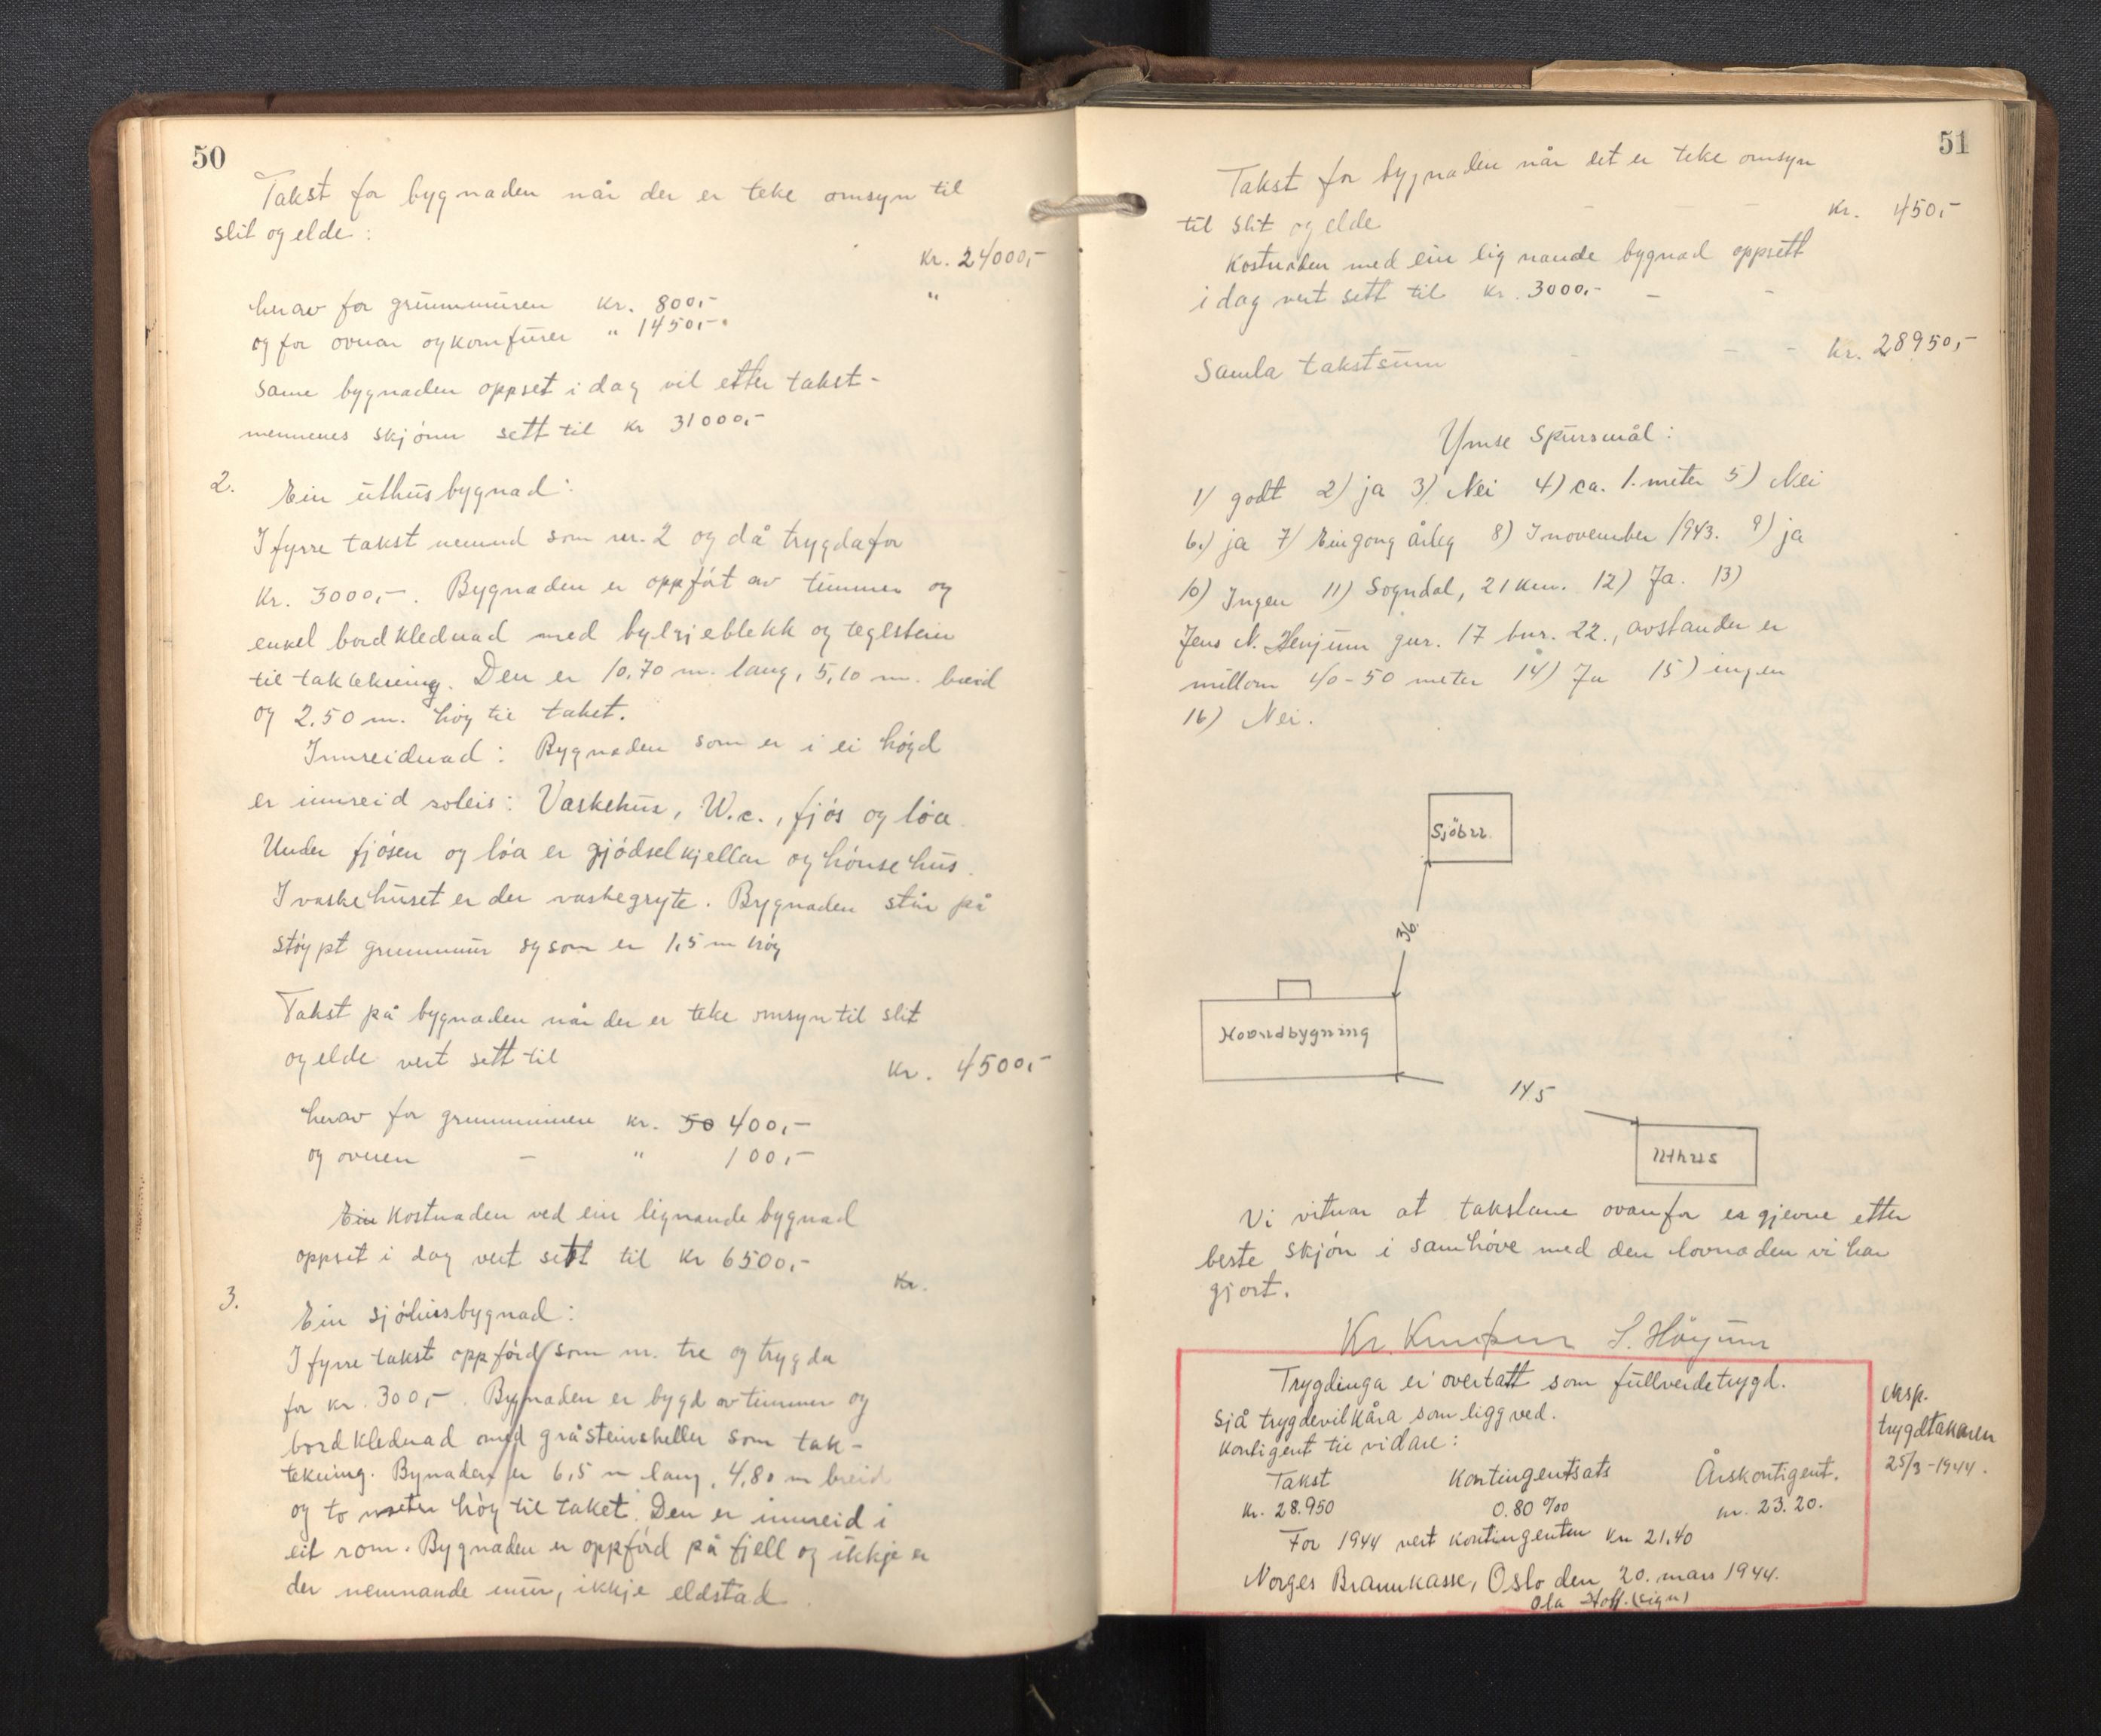 50
Takst for bygnaden når der er teke omsyn til
slit og elde:
Kr. 24000,-
herav for grunnmuren Kr. 800,- "
og for ovnar og komfurer " 1450,-
Same bygnaden oppset i dag vil etter takst-
mennenes skjønn sett til kr 31000,-
2. Ein uthusbygnad:
I fyrre takst nemnd som nr. 2 og då trygda for
Kr. 3000,-. Bygnaden er oppført av tømmer og
enkel bordklednad med bylgjeblekk og teglstein
til taktekning. Den er 10,70 m. lang, 5,10 m. breid
og 2.50 m. høg til taket.
Innreidnad: Bygnaden som er i ei høgd
er innreid soleis: Vaskehus, W.c., fjøs og løa
Under fjøsen og løa er gjødselkjellar og hønsehus.
I vaskehuset er der vaskegryte. Bygnaden står på
støypt grunnmur og som er 1,5 m høg
Takst på bygnaden når der er teke omsyn til slit
og elde vert sett til Kr. 4500,-
herav for grunnmuren kr. 50 400,-
og ovnen - " 100,-
Ein Kostnaden ved ein lignande bygnad
oppset i dag vert sett til Kr 6500,-
Kr.
3. Ein sjøhusbygnad:
I fyrre takst oppførd som nr. tre og trygda
for kr. 300,-. Bygnaden er bygd av tømmer og
bordklednad med gråsteinsheller som tak-
tekning. Bynaden er 6,5 m lang, 4,80 m breid
og to meter høg til taket. Den er innreid i
eit rom. Bygnaden er oppførd på fjell og ikkje er
der nemnande mur, ikkje eldstad.
51
Takst for bygnaden når det er teke omsyn
til slit og elde - - - Kr. 450,-
Kostnaden med ein lignande bygnad oppsett
i dag vert sett til kr. 3000,- - -
Samla takstsum - - - kr. 28950,-
Ymse Spursmål:
1) godt 2) ja 3) Nei 4) ca. 1. meter 5) Nei
6.) ja 7) Ein gong årleg 8) I november 1943. 9) ja
10) Ingen 11) Sogndal, 21 km. 12) Ja. 13)
Jens N. Henjum gnr. 17 bnr. 22., avstanden er
millom 40-50 meter 14) Ja 15) ingen
16) Nei.
Sjöbu
36.
Hovudbygning
14.5
Uthus
Vi vitnar at takstane ovanfor er gjevne etter
beste skjøn i samhøve med den lovnaden vi har
gjort.
Kr. S. Höyum
Trygdinga er overtatt som fullverdetrygd.
Sjå trygdevilkåra som ligg ved.
Kontigent til vidare:
Takst Kontingentsats Årskontigent.
Kr. 28.950 0.80 ‰ kr. 23.20.
For 1944 vert kontingenten kr 21.40
Norges Brannkasse, Oslo den 20. mars 1944.
Ola Hoff. (sign)
eksp.
trygdtakaren
25/3-1944.